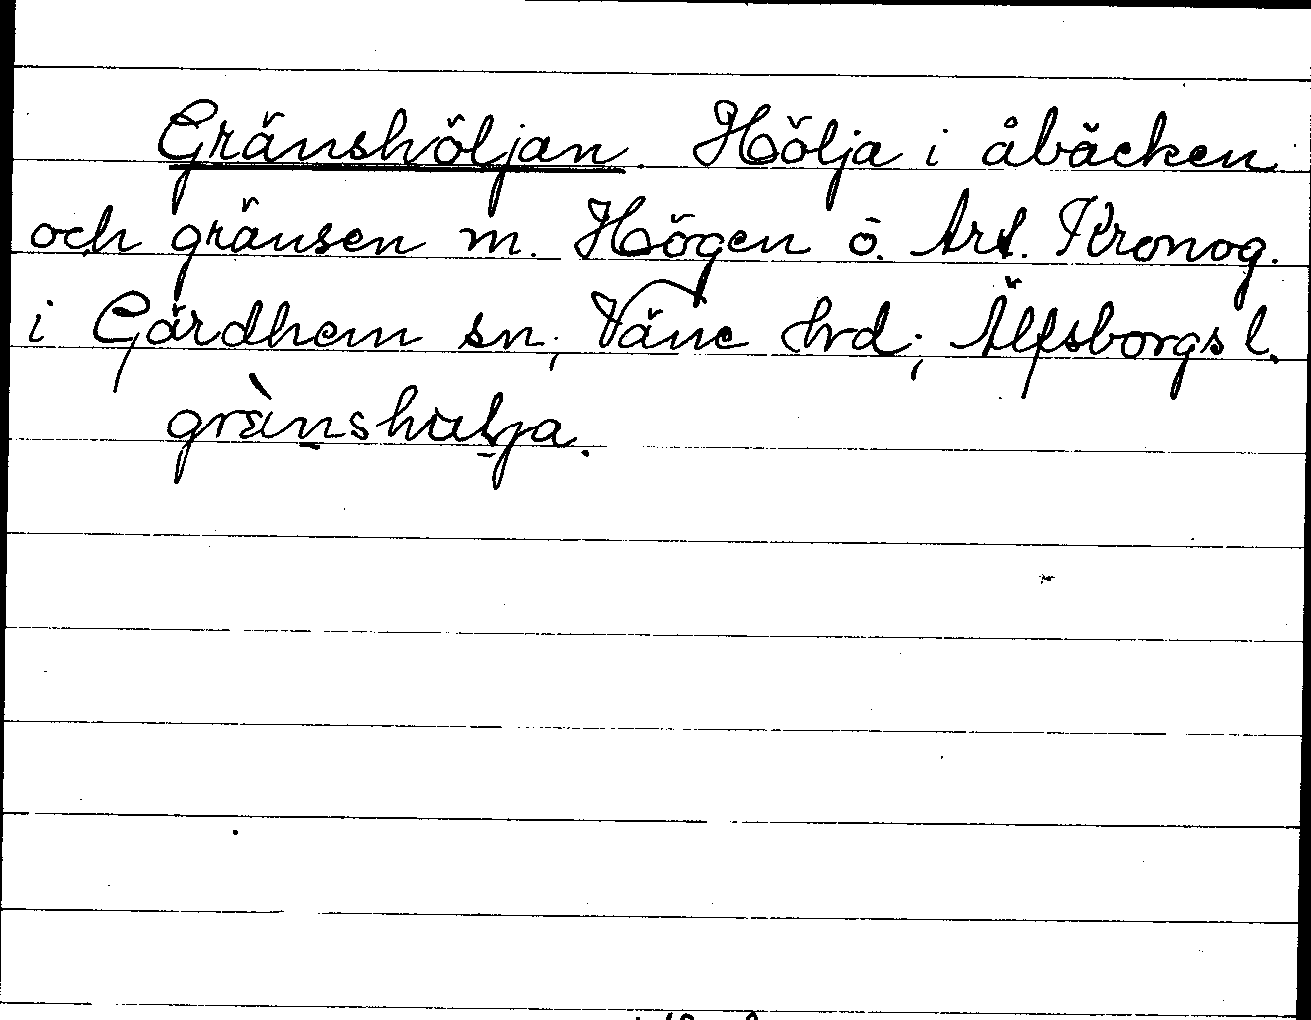 Gränshöljan. Hölja i åbäcken
och gränsen m. Högen ö. Art. Kronog.
i Gärdhem sn, Väne hrd, Älfsborgs l.
grànshulja.